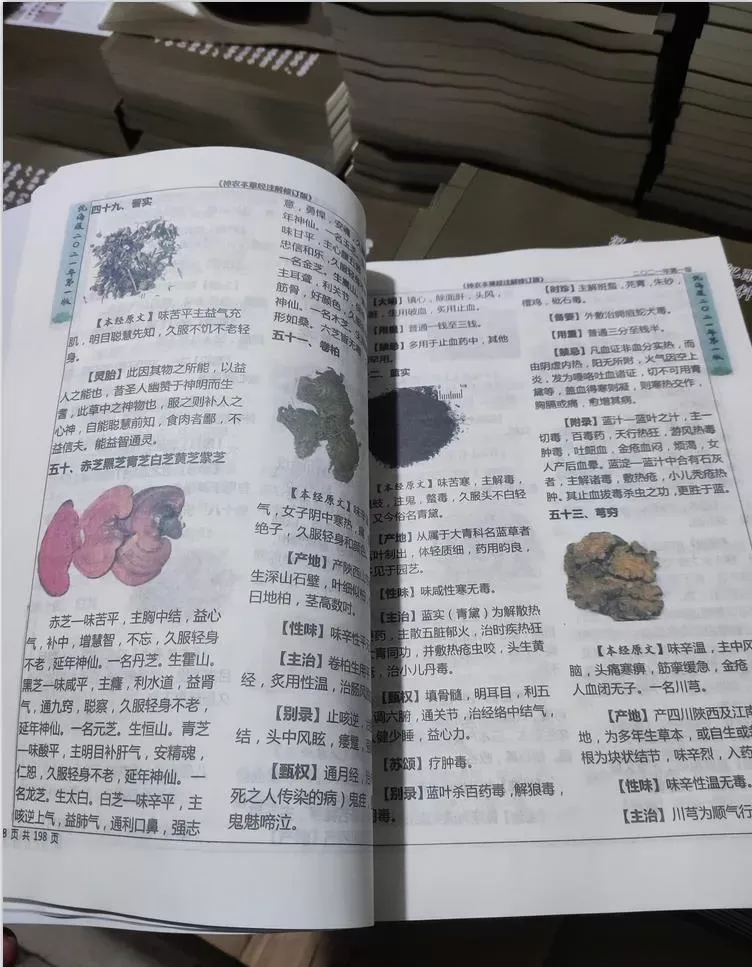 《神农本草经注解修订版》
四十九、蓍实
【本经原文】味苦平主益气充
肌，明目聪慧先知，久服不饥不老轻
身。
【灵胎】此因其物之所能，以益
人之能也，昔圣人幽赞于神明而生
蓍，此草中之神物也，服之则补人之
心神，自能聪慧前知，食肉者鄙，不
益信夫。能益智通灵。
五十、赤芝黑芝青芝白芝黄芝紫芝
赤芝—味苦平，主胸中结，益心
气，补中，增慧智，不忘，久服轻身
不老，延年神仙。一名丹芝。生霍山。
黑芝—味咸平，主癃，利水道，益肾
气，通九窍，聪察，久服轻身不老，
延年神仙。一名元芝。生恒山。青芝
—味酸平，主明目补肝气，安精魂，
仁恕，久服轻身不老，延年神仙。一
名龙芝。生太白。白芝—味辛平，主
咳逆上气，益肺气，通利口鼻，强志
意，勇悍，安魄，久
年神仙。一名玉
味甘平，主心腹五
忠信和乐，久服轻
一名金芝。生嵩山
主耳聋，利关节，
筋骨，好颜色，久服
神仙。一名木芝。
形如桑。六芝皆无毒
五十一、卷柏
【本经原文】味
气，女子阴中寒热，痛
绝子，久服轻身和颜色
【产地】产陕西
生深山石壁，叶细似柏
曰地柏，茎高数吋。
【性味】味辛性平
【主治】卷柏生用
经，炙用性温，治肠风
【别录】止咳逆，
结，头中风眩，痿躄，
【甄权】通月经，
死之人传染的病）鬼疰
鬼魅啼泣。
8 页 共 198 页
《神农本草经注解修订版》
二〇二一年第一版
【大明】镇心，除面皯，头风，
，生用破血，炙用止血。
【用量】普通一钱至三钱。
【禁忌】多用于止血药中，其他
罕用。
二、蓝实
【本经原文】味苦寒，主解毒，
蚑，注鬼，螫毒，久服头不白轻
又今俗名青黛。
【产地】从属于大青科名蓝草者
叶制出，体轻质细，药用昀良，
见于园艺。
【性味】味咸性寒无毒。
【主治】蓝实（青黛）为解散热
药，主散五脏郁火，治时疾热狂
青同功，并敷热疮虫咬，头生黄
，治小儿丹毒。
【甄权】填骨髓，明耳目，利五
调六腑，通关节，治经络中结气，
健少睡，益心力。
【苏颂】疗肿毒。
【别录】蓝叶杀百药毒，解狼毒，
罔毒。
【时珍】主解斑蝥，芫青，朱砂，
樗鸡，砒石毒。
【备要】外敷治痈疮蛇犬毒。
【用量】普通三分至钱半。
【禁忌】凡血证非血分实热，而
由阴虚内热，阳无所附，火气因空上
炎，发为唾咯吐血诸证，切不可用青
黛等，盖血得寒则凝，则寒热交作，
胸膈或痛，愈增其病。
【附录】蓝汁—蓝叶之汁，主一
切毒，百毒药，天行热狂，游风热毒
肿毒，吐衄血，金疮血闷，烦渴，女
人产后血晕。蓝淀—蓝汁中合有石灰
者，主解诸毒，敷热疮，小儿秃疮热
肿。其止血拔毒杀虫之功，更胜于蓝。
五十三、芎穷
【本经原文】味辛温，主中风
脑，头痛寒痹，筋挛缓急，金疮
人血闭无子。一名川芎。
【产地】产四川陕西及江南
地，为多年生草本，或自生或栽
根为块状结节，味辛烈，入药
【性味】味辛性温无毒。
【主治】川芎为顺气行